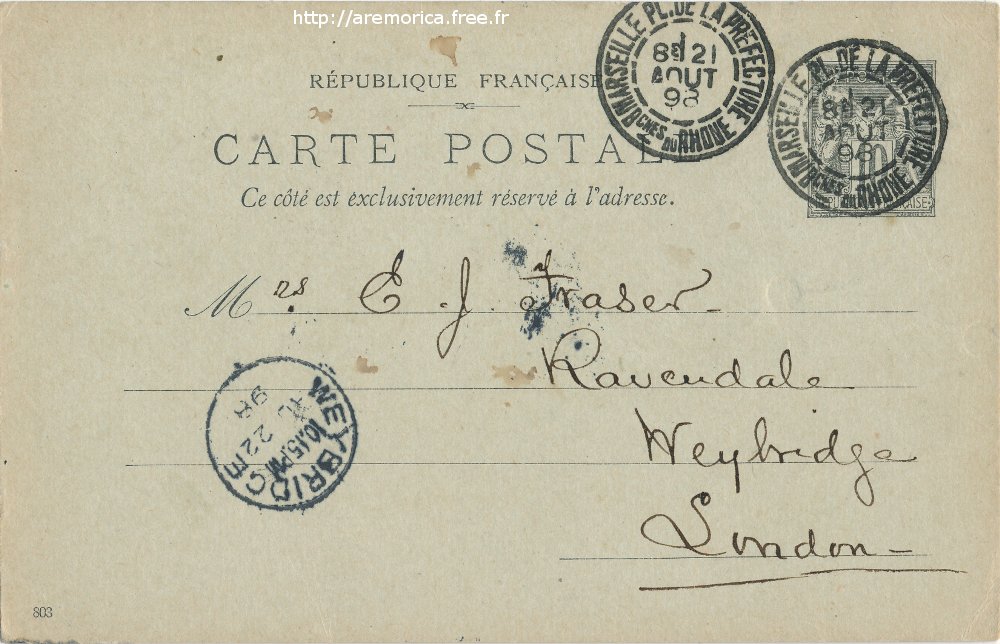 http://aremorica.free.fr
MARSEILLE PL. DE LA PREFECTURE
8E 21
AOUT
98
BCHES DU RHONE
MARSEILLE PL. DE LA PREFECTURE
8E 21
AOUT
98
BCHES DU RHONE
RÉPUBLIQUE FRANÇAISE
CARTE POSTALE
Ce côté est exclusivement réservé à l'adresse.
Mrs. E. J. Fraser
Ravendale
Weybridge
London
WEYBRIDGE
10.15.PM
22
98
803